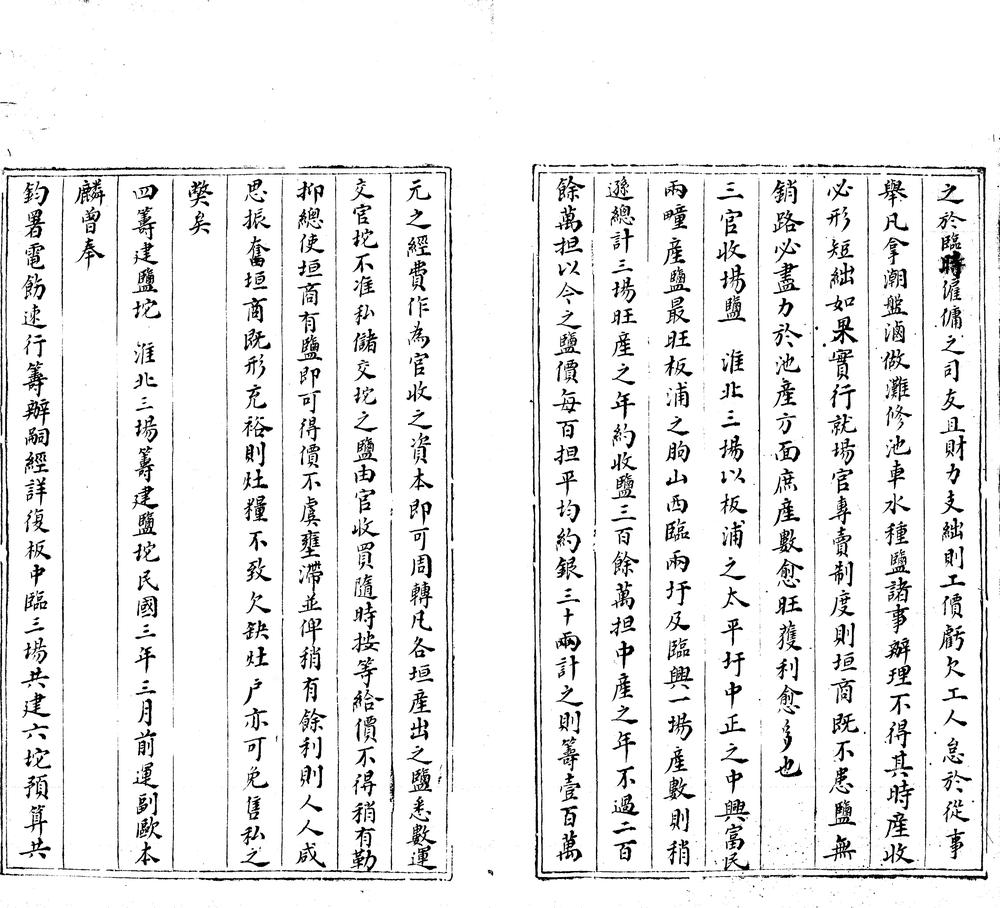 之於臨時雇傭之司友且財力支絀則工價虧欠工人怠於從事
舉凡拿潮盤滷做灘修池車水種鹽諸事辦理不得其時產收
必形短絀如果實行就場官專賣制度則垣商既不患鹽無
銷路必盡力於池產方面庶產數愈旺獲利愈多也
三官收場鹽　淮北三場以板浦之太平圩中正之中興富民
兩疃產鹽最旺板浦之朐山西臨兩圩及臨興一場產數則稍
遜總計三場旺產之年約收鹽三百餘萬担中產之年不過二百
餘萬担以今之鹽價每百担平均約銀三十兩計之則籌壹百萬
元之經費作為官收之資本即可周轉凡各垣產出之鹽悉數運
交官坨不准私儲交坨之鹽由官收買隨時按等給價不得稍有勒
抑總使垣商有鹽即可得價不虞壅滯並俾稍有餘利則人人咸
思振奮垣商既形充裕則灶糧不致欠缺灶戶亦可免售私之
獘矣
四籌建鹽坨　淮北三場籌建鹽坨民國三年三月前運副歐本
麟曾奉
鈞署電飭速行籌辦嗣經詳復板中臨三場共建六坨預算共